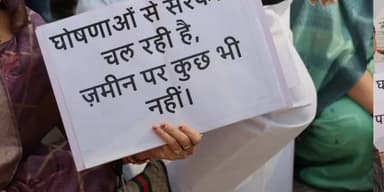 घोषणाओं से सरकार
चल रही है,
ज़मीन पर कुछ भी
नहीं।